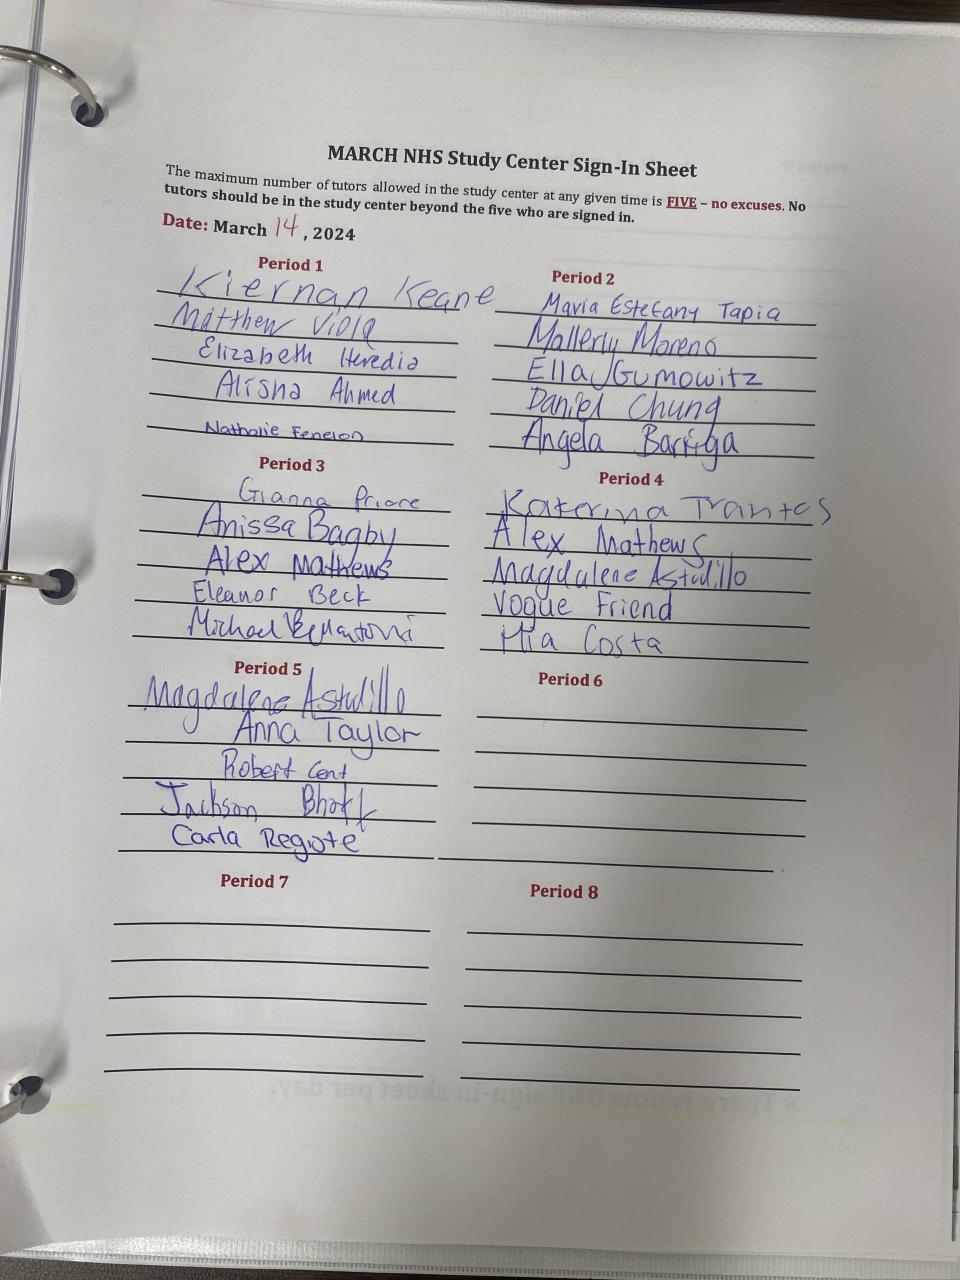 MARCH NHS Study Center Sign-In Sheet
The maximum number of tutors allowed in the study center at any given time is FIVE – no excuses. No
tutors should be in the study center beyond the five who are signed in.
Date: March 14, 2024
Period 1
Kiernan Keane
Matthew Viola
Elizabeth Heredia
Alisha Ahmed
Nathalie Fenelon
Period 2
Maria Estefany Tapia
Mallerly Moreno
Ella Gumowitz
Daniel Chung
Angela Barriga
Period 3
Gianna Priore
Anissa Bagby
Alex Mathews
Eleanor Beck
Michael
Period 4
Katerina Trantos
Alex Mathews
Magdalene Astudillo
Vogue Friend
Mia Costa
Period 5
Magdalene Astudillo
Anna Taylor
Robert Cent
Jackson Bhatt
Carla Regiote
Period 6
Period 7
Period 8